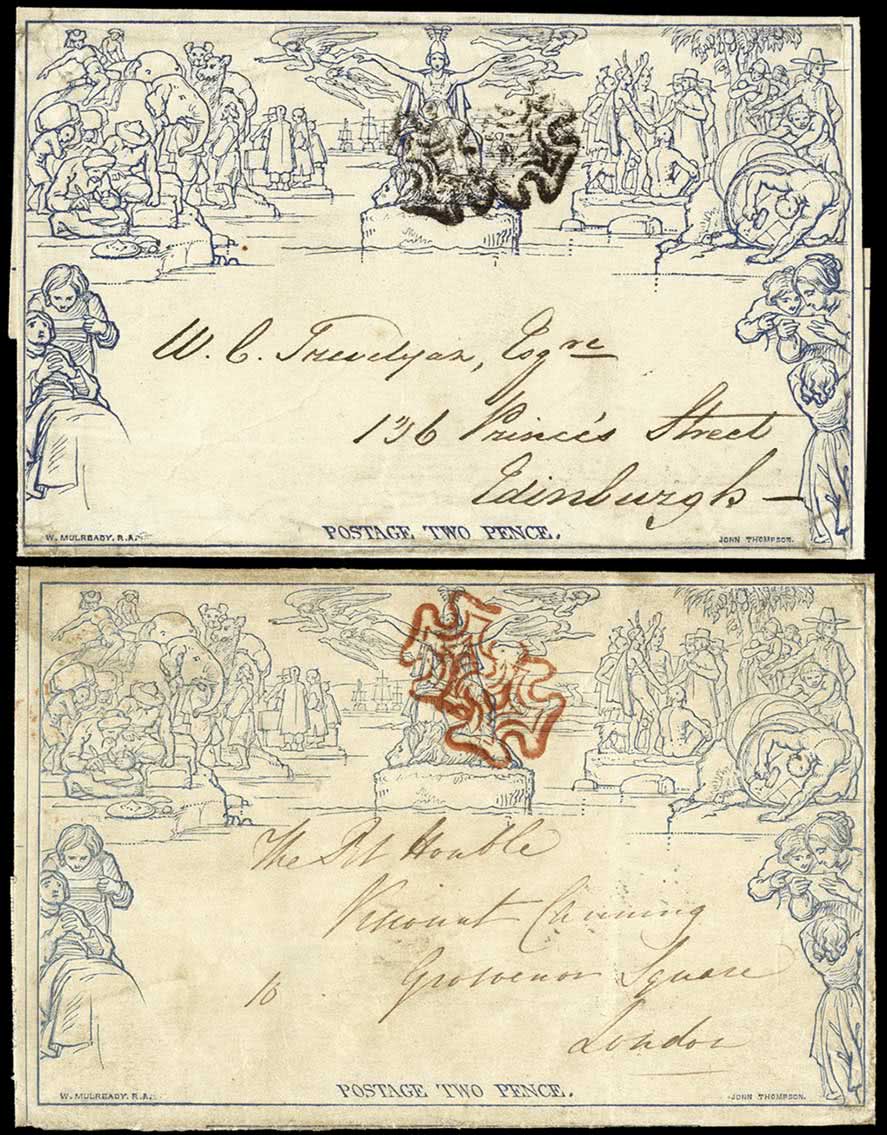 W. C. Trevelyan, Esqre
136 Prince's Street
Edinburgh
W. MULREADY, R.A.
POSTAGE TWO PENCE.
JOHN THOMPSON.
The Rt Honble
Viscount Canning
10 Grosvenor Square
London
W. MULREADY, R.A.
POSTAGE TWO PENCE.
JOHN THOMPSON.